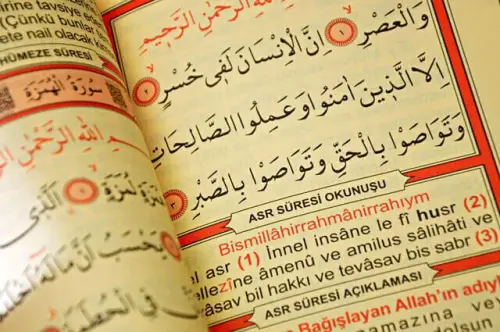 irine tavsiye ed
(Çünkü bunlar
ete nail olacak
HÜMEZE SÛRESİ
سورة الهمزة
بسم الله الرحمن الرحيم
همزة لمزة ۙ ١ الذى
يحسب ان ماله
فى الحطمة
الله الرحمن الرحيم
والعصر ۙ ١ ان الانسان لفى خسر ۙ ٢
الا الذين اٰمنوا وعملوا الصالحات
وتواصوا بالحق وتواصوا بالصبر ٣
ASR SÛRESİ OKUNUŞU
Bismillâhirrahmânirrahıym
el asr (1) İnnel insâne le fî husr (2)
ellezîne âmenû ve amilus sâlihâti ve
vâsav bil hakkı ve tevâsav bis sabr (3)
ASR SÛRESİ AÇIKLAMASI
Bağışlayan Allah'ın adıyl
amazına ve